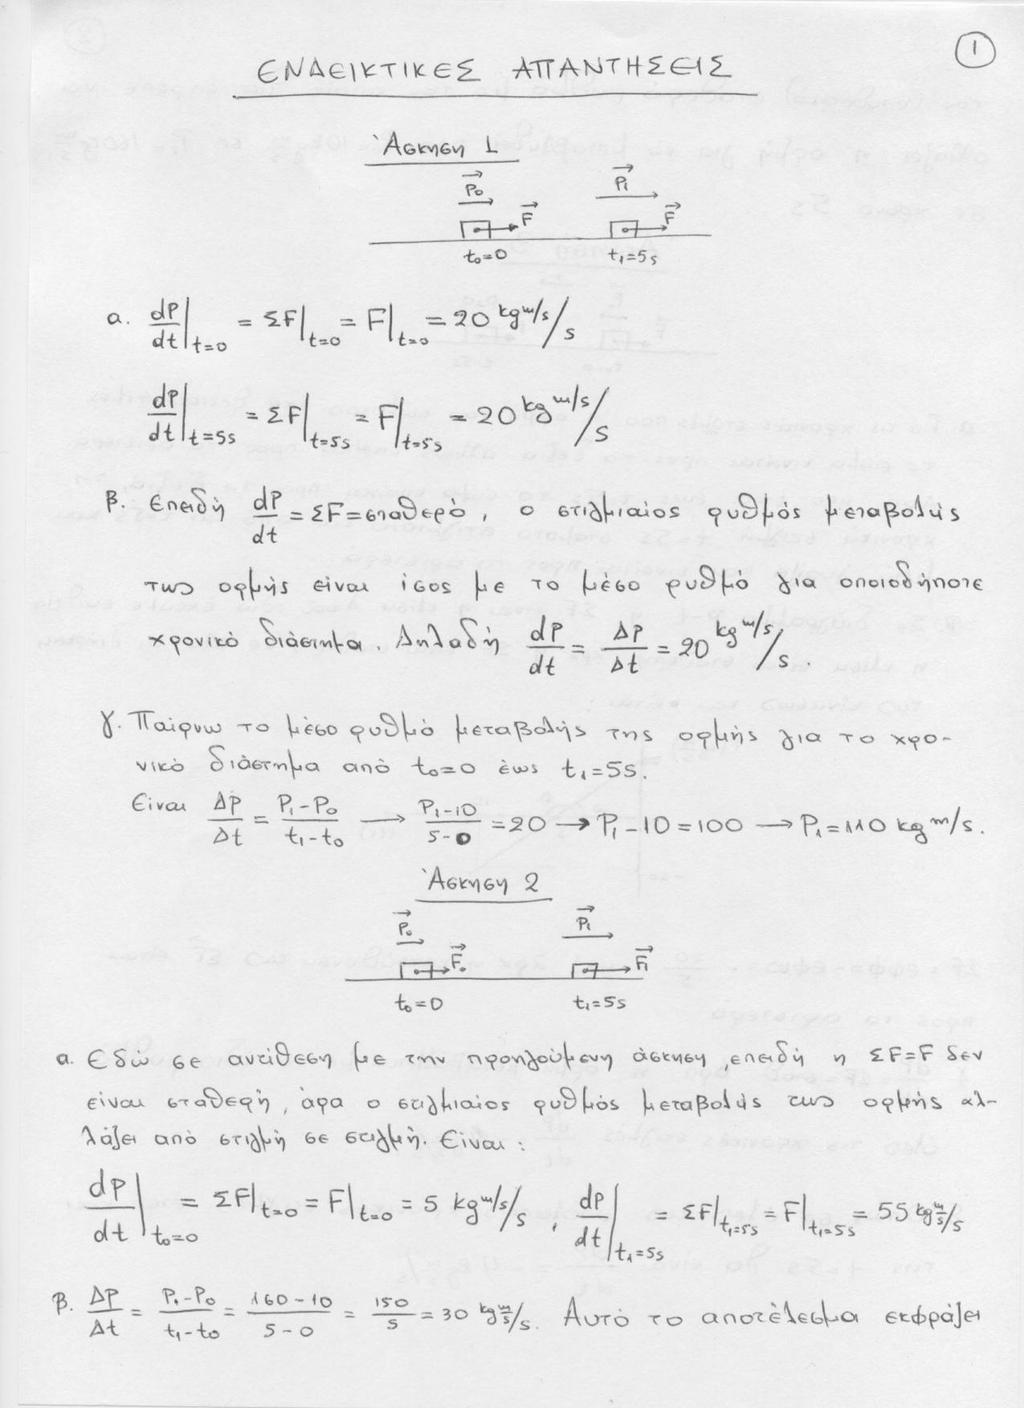 1
ΕΝΔΕΙΚΤΙΚΕΣ ΑΠΑΝΤΗΣΕΙΣ
Άσκηση 1
P₀ P₁
F F
t₀=0 t₁=5s
α. dP/dt|t=0 = ΣF|t=0 = F|t=0 = 20 kg m/s/s
dP/dt|t=5s = ΣF|t=5s = F|t=5s = 20 kg m/s/s
β. Επειδή dP/dt = ΣF = σταθερό, ο στιγμιαίος ρυθμός μεταβολής
της ορμής είναι ίσος με το μέσο ρυθμό για οποιοδήποτε
χρονικό διάστημα. Δηλαδή dP/dt = ΔP/Δt = 20 kg m/s/s.
γ. Παίρνω το μέσο ρυθμό μεταβολής της ορμής για το χρο-
νικό διάστημα από t₀=0 έως t₁=5s.
Είναι ΔP/Δt = P₁-P₀/t₁-t₀ → P₁-10/5-0 = 20 → P₁-10=100 → P₁=110 kg m/s.
Άσκηση 2
P₀ P₁
F₀ F₁
t₀=0 t₁=5s
α. Εδώ σε αντίθεση με την προηγούμενη άσκηση, επειδή η ΣF=F δεν
είναι σταθερή, άρα ο στιγμιαίος ρυθμός μεταβολής της ορμής αλ-
λάζει από στιγμή σε στιγμή. Είναι:
dP/dt|t₀=0 = ΣF|t₀=0 = F|t₀=0 = 5 kg m/s/s, dP/dt|t₁=5s = ΣF|t₁=5s = F|t₁=5s = 55 kg m/s/s
β. ΔP/Δt = P₁-P₀/t₁-t₀ = 160-10/5-0 = 150/5 = 30 kg m/s/s. Αυτό το αποτέλεσμα εκφράζει